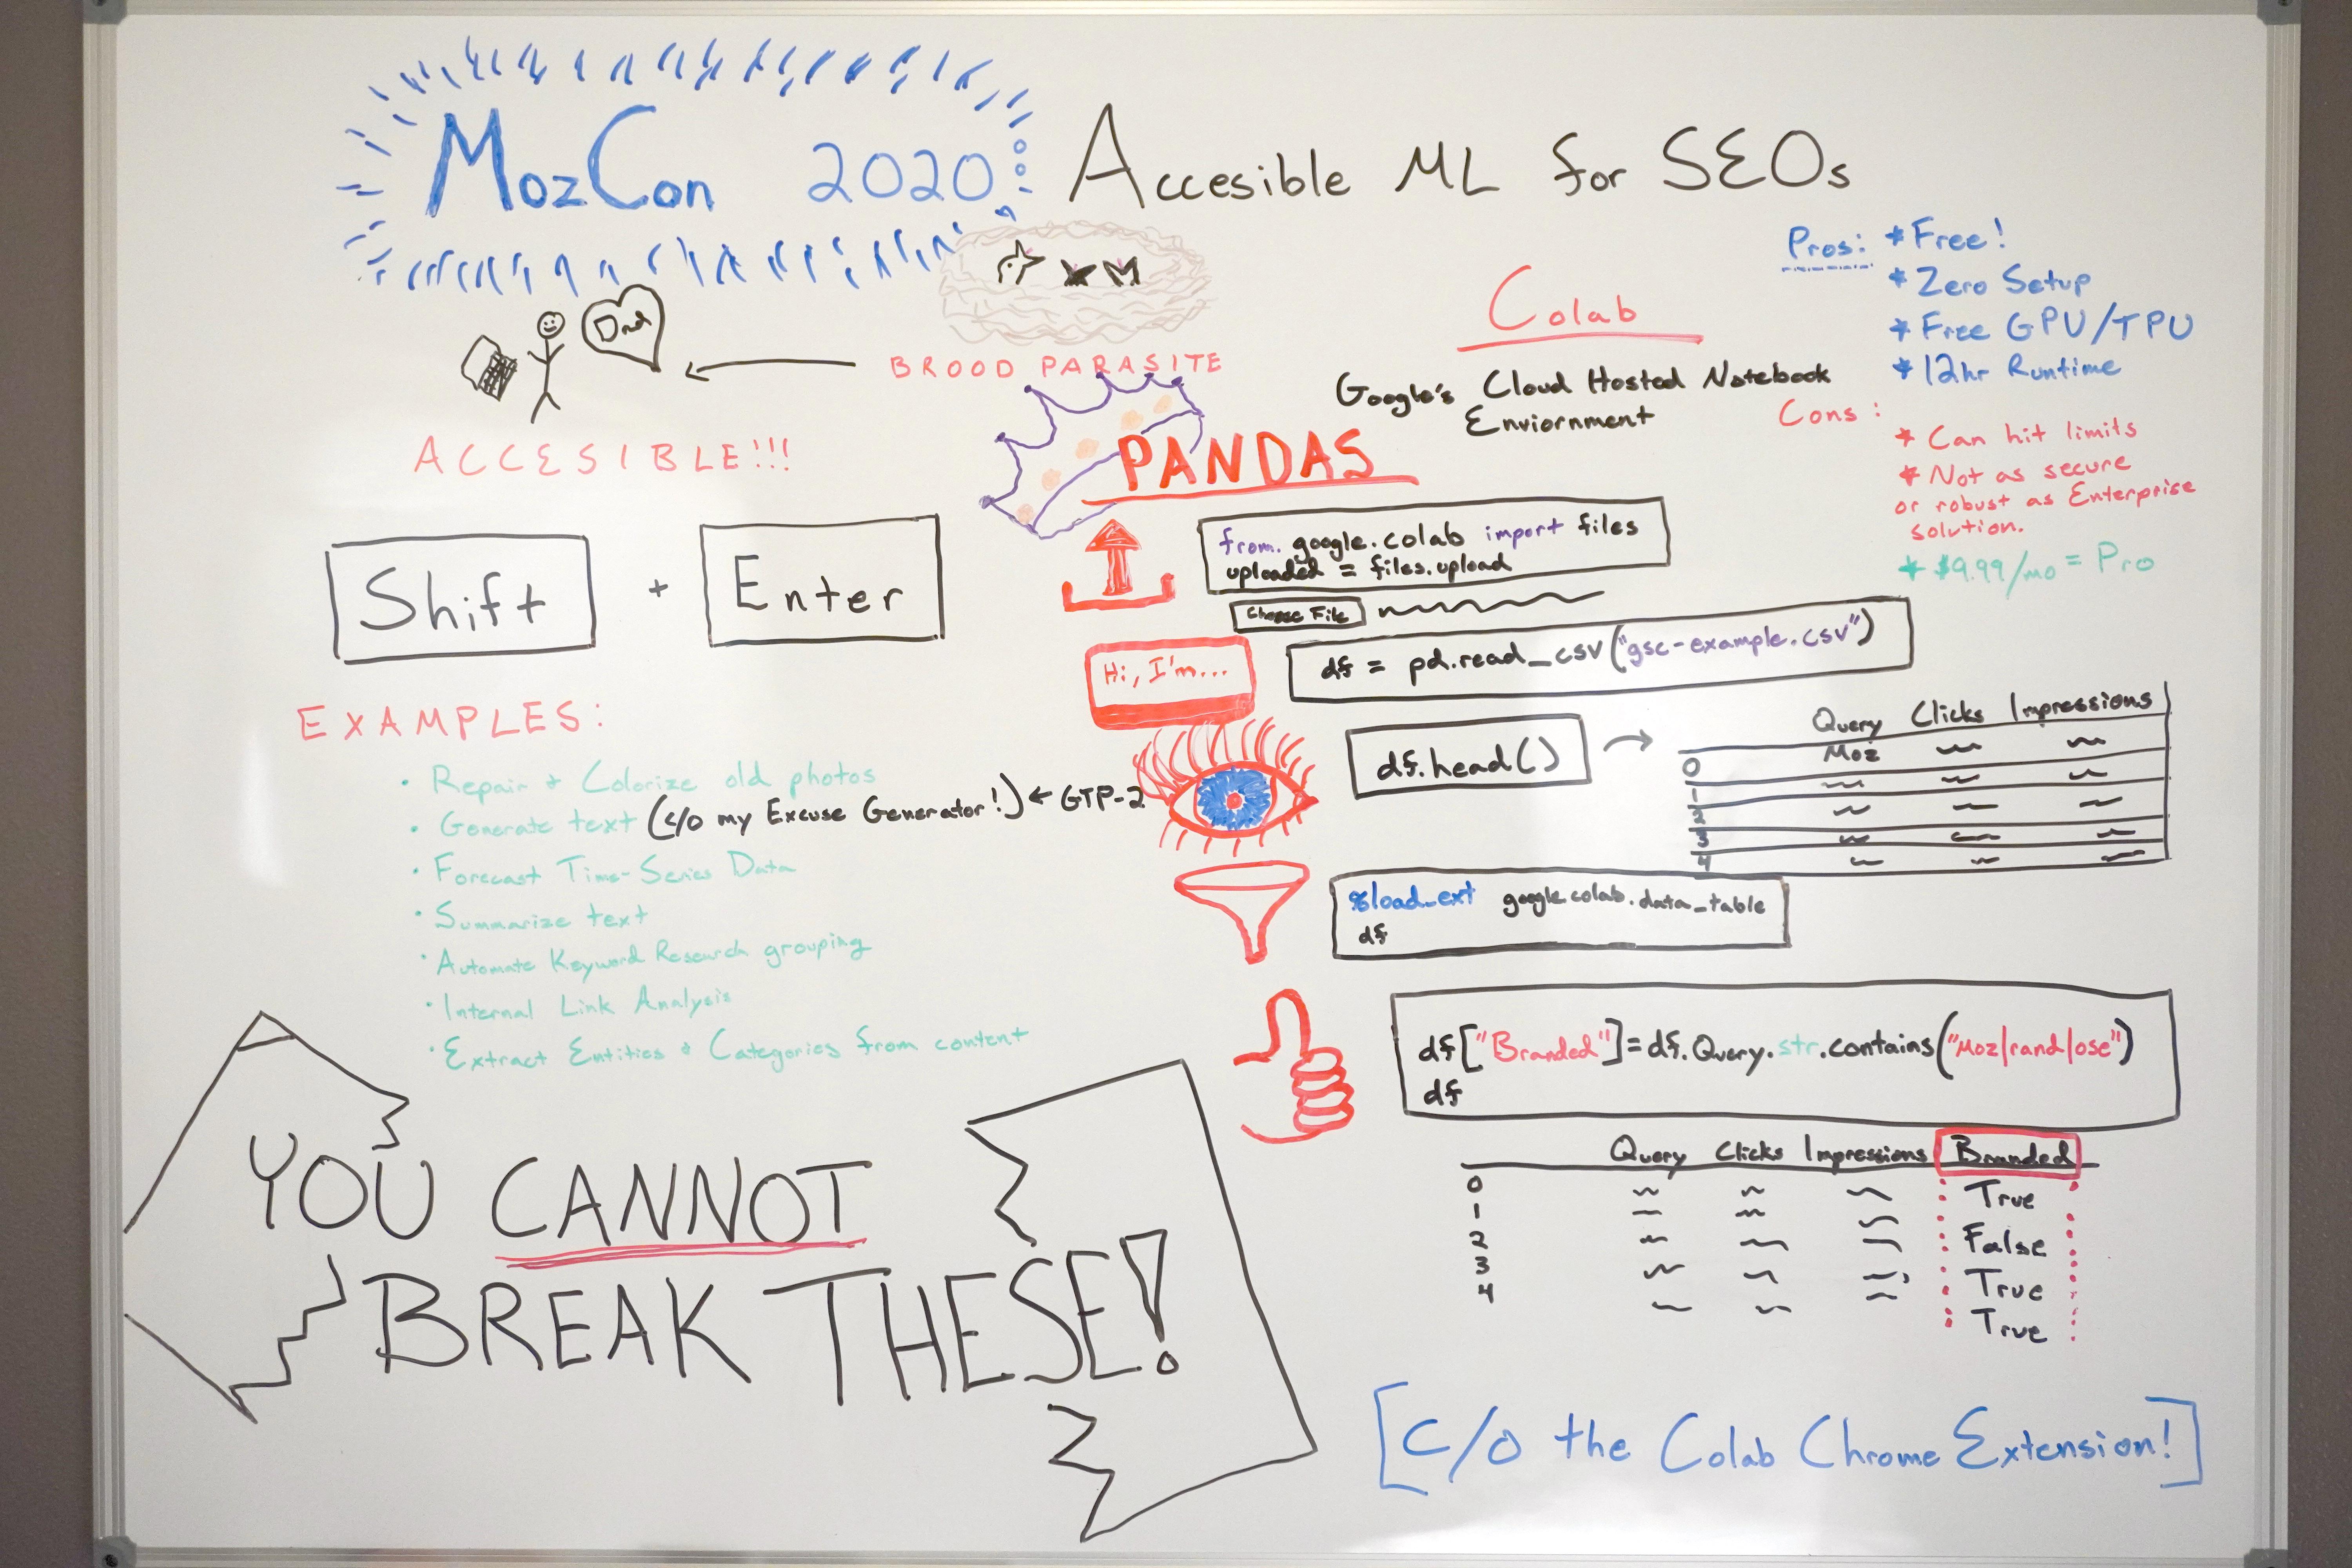 MozCon 2020: Accesible ML for SEOs
Dad
BROOD PARASITE
ACCESIBLE!!!
Shift + Enter
EXAMPLES:
• Repair & Colorize old photos
• Generate text (c/o my Excuse Generator!) ← GTP-2
• Forecast Time-Series Data
• Summarize text
• Automate Keyword Research grouping
• Internal Link Analysis
• Extract Entities & Categories from content
YOU CANNOT
BREAK THESE!
Colab
Google's Cloud Hosted Notebook
Enviornment
Pros: * Free!
* Zero Setup
* Free GPU/TPU
* 12hr Runtime
Cons:
* Can hit limits
* Not as secure
or robust as Enterprise
solution.
* $9.99/mo = Pro
PANDAS
from. google.colab import files
uploaded = files.upload
Choose File
Hi, I'm...
df = pd.read_csv("gsc-example.csv")
df.head()
Query Clicks Impressions
0 Moz
1
2
3
4
%load_ext google.colab.data_table
df
df["Branded"]=df.Query.str.contains("Moz|rand|ose")
df
Query Clicks Impressions Branded
0 True
1
2 False
3 True
4 True
[C/O the Colab Chrome Extension!]